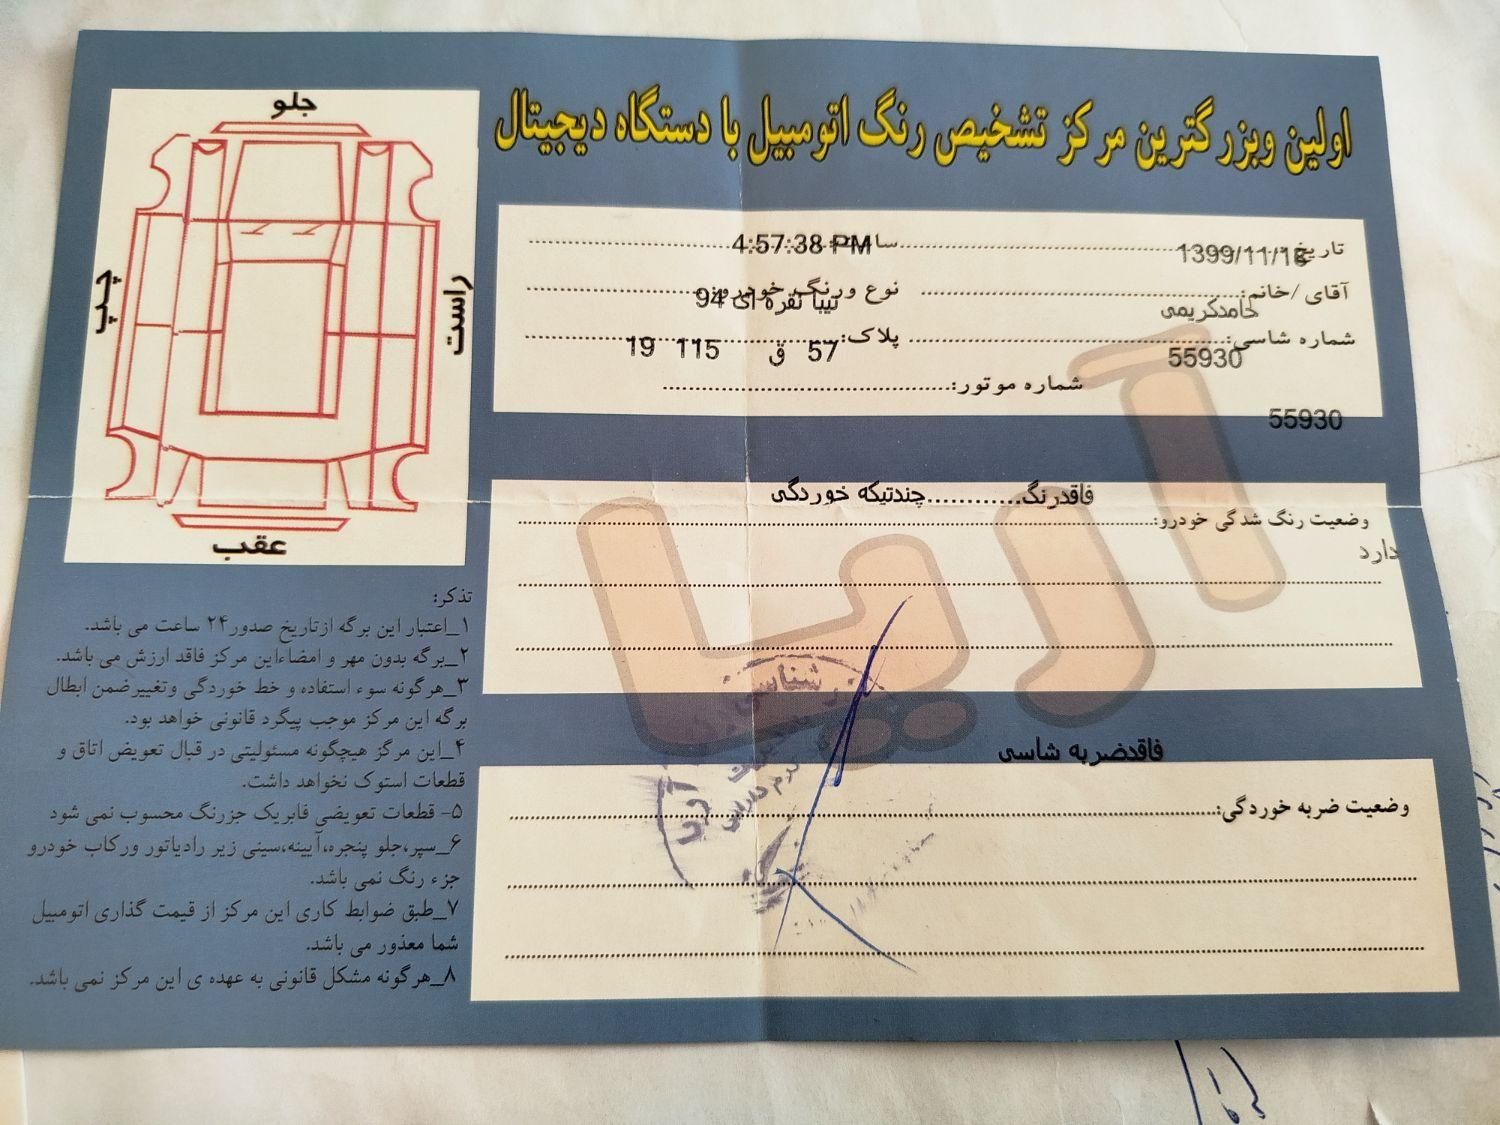 اولین وبزرگترین مرکز تشخیص رنگ اتومبیل با دستگاه دیجیتال
تاریخ: 1399/11/18 ساعت: 4:57:38 PM
آقای /خانم: حامدکریمی نوع ورنگ خودرو: تیبا نقره ای 94
شماره شاسی: 55930 پلاک: 57 ق 115 19
شماره موتور:
55930
فاقدرنگ............چندتیکه خوردگی
وضعیت رنگ شدگی خودرو:
دارد
آریا
فاقدضربه شاسی
وضعیت ضربه خوردگی:
جلو
چپ
راست
عقب
تذکر:
۱_اعتبار این برگه ازتاریخ صدور۲۴ ساعت می باشد.
۲_برگه بدون مهر و امضاءاین مرکز فاقد ارزش می باشد.
۳_هرگونه سوء استفاده و خط خوردگی وتغییرضمن ابطال
برگه این مرکز موجب پیگرد قانونی خواهد بود.
۴_این مرکز هیچگونه مسئولیتی در قبال تعویض اتاق و
قطعات استوک نخواهد داشت.
۵- قطعات تعویضی فابریک جزرنگ محسوب نمی شود
۶_سپر،جلو پنجره،آیینه،سینی زیر رادیاتور ورکاب خودرو
جزء رنگ نمی باشد.
۷_طبق ضوابط کاری این مرکز از قیمت گذاری اتومبیل
شما معذور می باشد.
۸_هرگونه مشکل قانونی به عهده ی این مرکز نمی باشد.